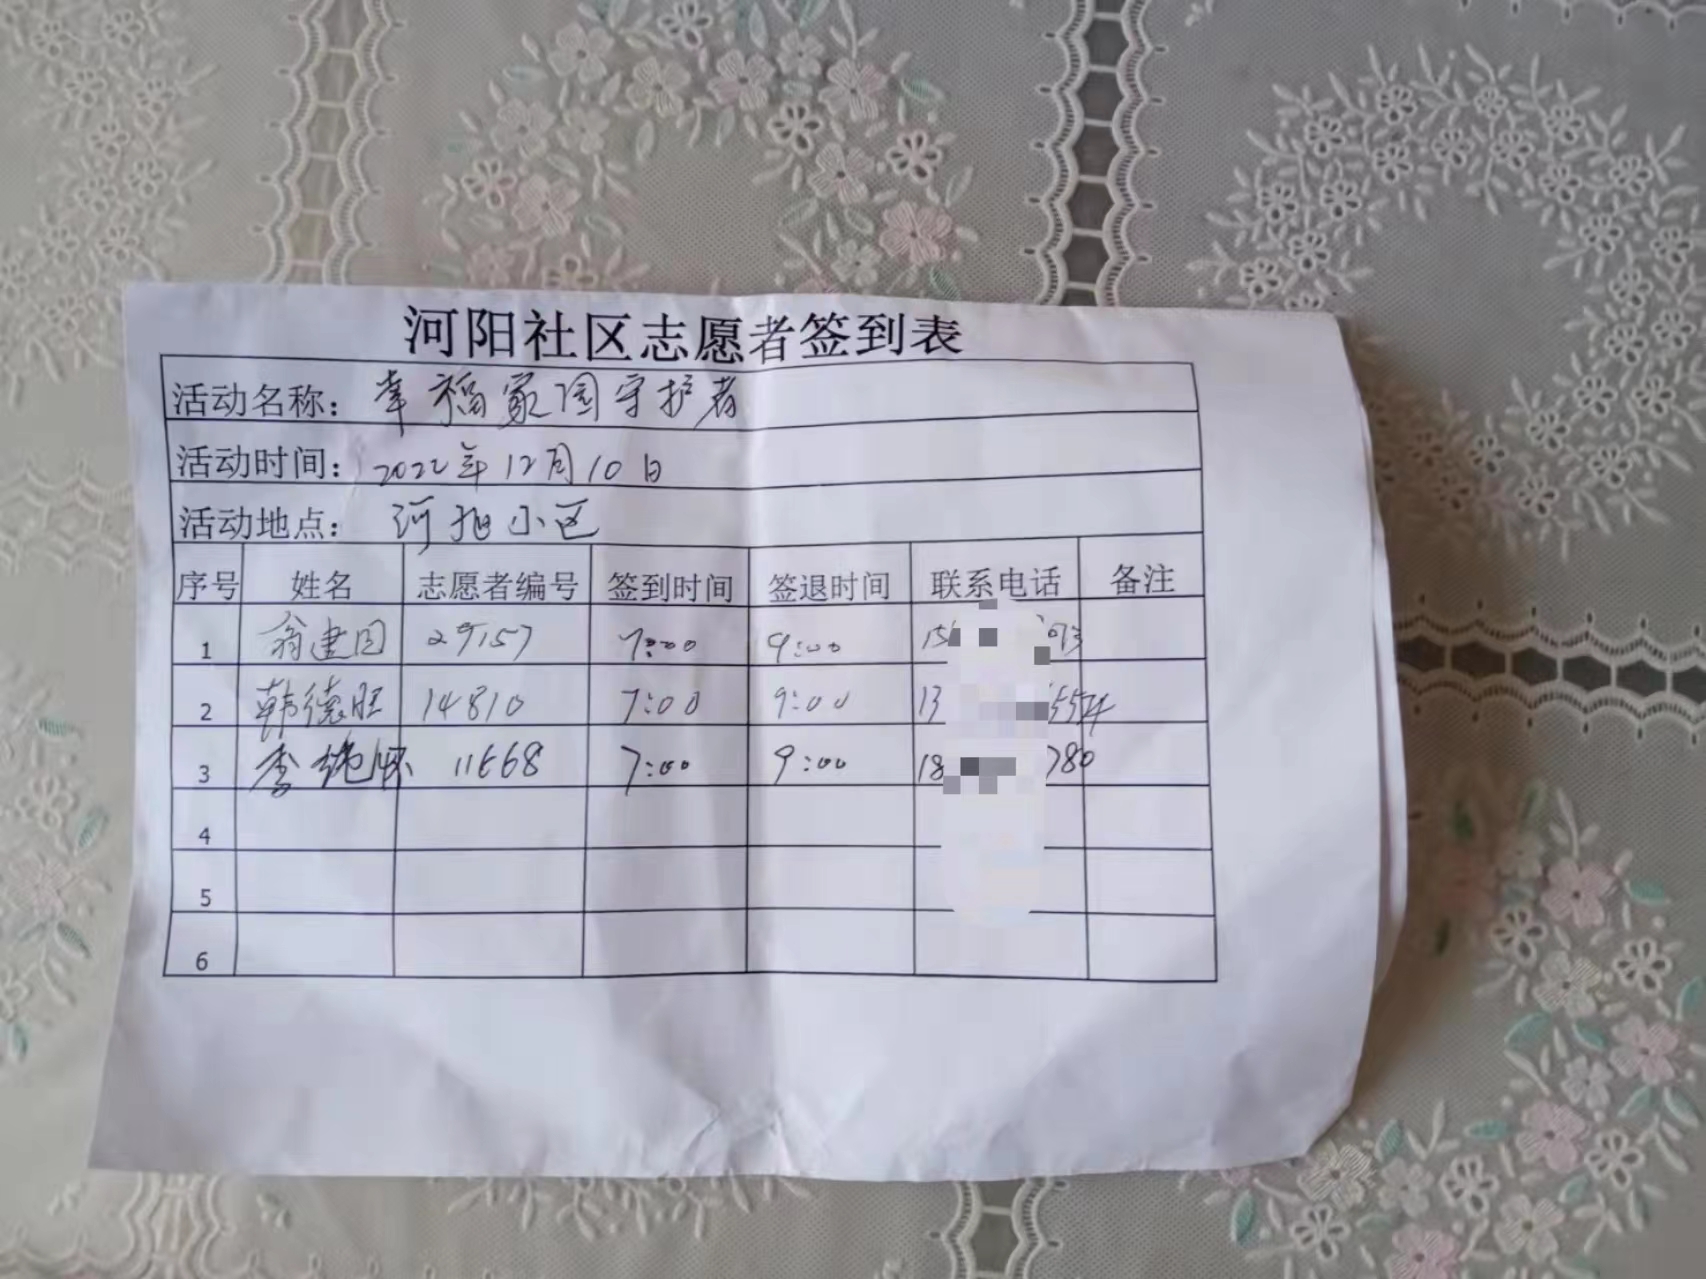 河阳社区志愿者签到表
活动名称：幸福家园守护者
活动时间：2022年12月10日
活动地点：河旭小区
序号 姓名 志愿者编号 签到时间 签退时间 联系电话 备注
1 翁建国 29157 7:00 9:00 15 93
2 韩德旺 14810 7:00 9:00 13 5574
3 李 11668 7:00 9:00 18 780
4
5
6